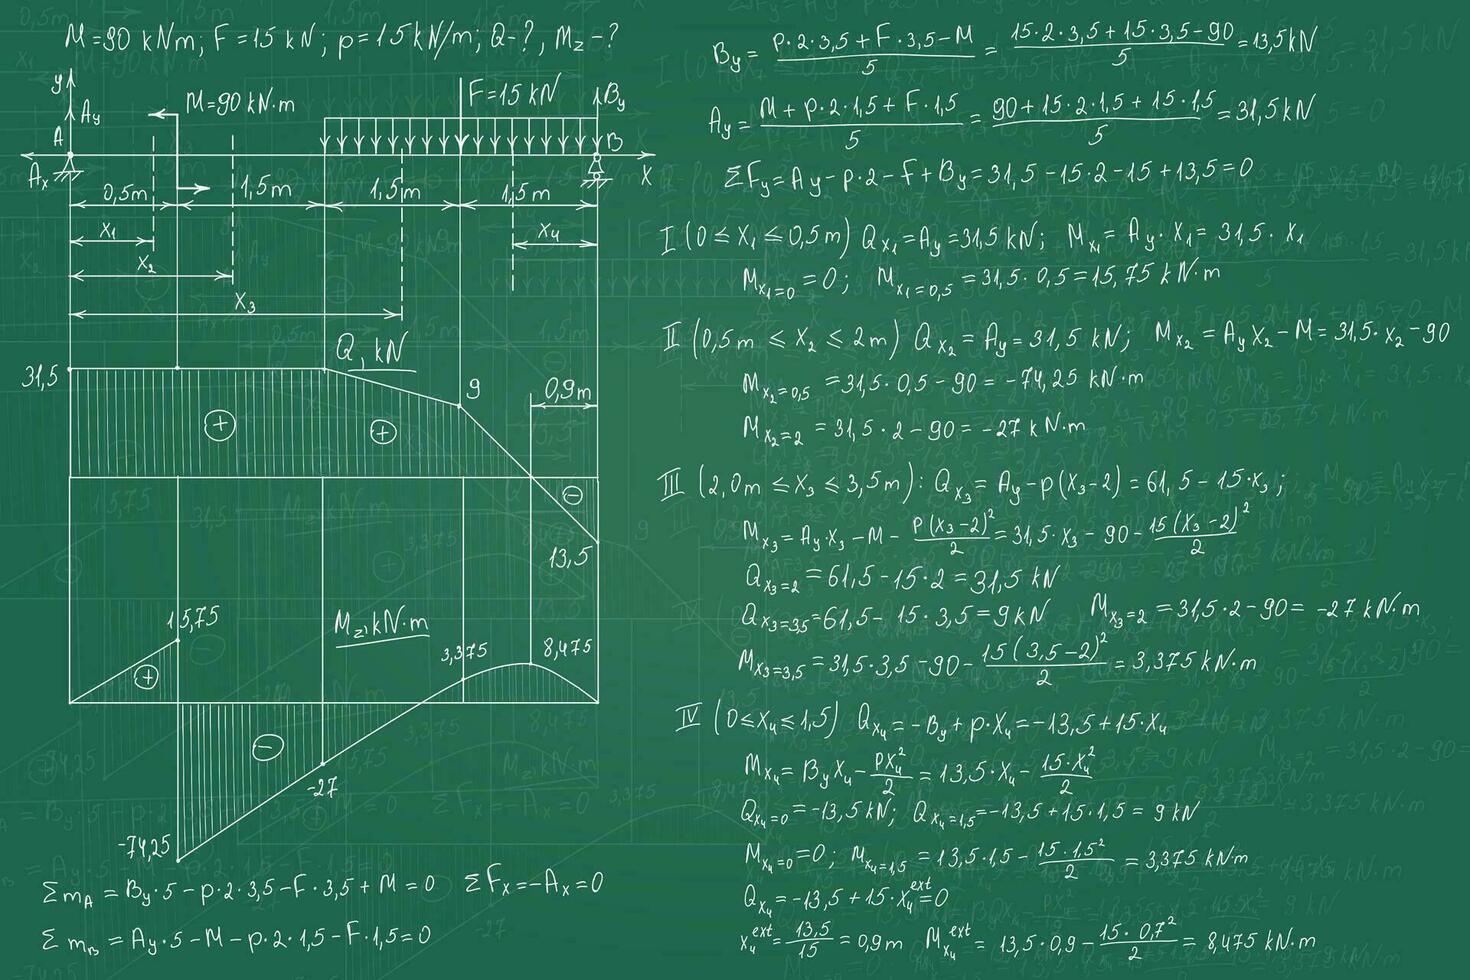 M=90 kNm; F=15 kN; p=15 kN/m; Q-?, Mz-?
y
Ay
A
Ax
M=90 kN·m
F=15 kN
By
B
X
0,5m
1,5m
1,5m
1,5m
x1
x4
x2
x3
Q, kN
31,5
9
0,9m
+
+
−
13,5
15,75
Mz, kN·m
3,375
8,475
+
−
-27
-74,25
ΣmA = By·5 − p·2·3,5 − F·3,5 + M = 0
ΣFx = −Ax = 0
ΣmB = Ay·5 − M − p·2·1,5 − F·1,5 = 0
By = (p·2·3,5 + F·3,5 − M)/5 = (15·2·3,5 + 15·3,5 − 90)/5 = 13,5 kN
Ay = (M + p·2·1,5 + F·1,5)/5 = (90 + 15·2·1,5 + 15·1,5)/5 = 31,5 kN
ΣFy = Ay − p·2 − F + By = 31,5 − 15·2 − 15 + 13,5 = 0
I (0 ≤ x1 ≤ 0,5m) Qx1 = Ay = 31,5 kN; Mx1 = Ay·x1 = 31,5·x1
Mx1=0 = 0; Mx1=0,5 = 31,5·0,5 = 15,75 kN·m
II (0,5m ≤ x2 ≤ 2m) Qx2 = Ay = 31,5 kN; Mx2 = Ay x2 − M = 31,5·x2 − 90
Mx2=0,5 = 31,5·0,5 − 90 = −74,25 kN·m
Mx2=2 = 31,5·2 − 90 = −27 kN·m
III (2,0m ≤ x3 ≤ 3,5m): Qx3 = Ay − p(x3−2) = 61,5 − 15·x3;
Mx3 = Ay·x3 − M − p(x3−2)²/2 = 31,5·x3 − 90 − 15(x3−2)²/2
Qx3=2 = 61,5 − 15·2 = 31,5 kN
Qx3=3,5 = 61,5 − 15·3,5 = 9 kN Mx3=2 = 31,5·2 − 90 = −27 kN·m
Mx3=3,5 = 31,5·3,5 − 90 − 15(3,5−2)²/2 = 3,375 kN·m
IV (0 ≤ x4 ≤ 1,5) Qx4 = −By + p·x4 = −13,5 + 15·x4
Mx4 = By x4 − px4²/2 = 13,5·x4 − 15·x4²/2
Qx4=0 = −13,5 kN; Qx4=1,5 = −13,5 + 15·1,5 = 9 kN
Mx4=0 = 0; Mx4=1,5 = 13,5·1,5 − 15·1,5²/2 = 3,375 kNm
Qx4 = −13,5 + 15·x4ext = 0
x4ext = 13,5/15 = 0,9m Mx4ext = 13,5·0,9 − 15·0,7²/2 = 8,475 kN·m